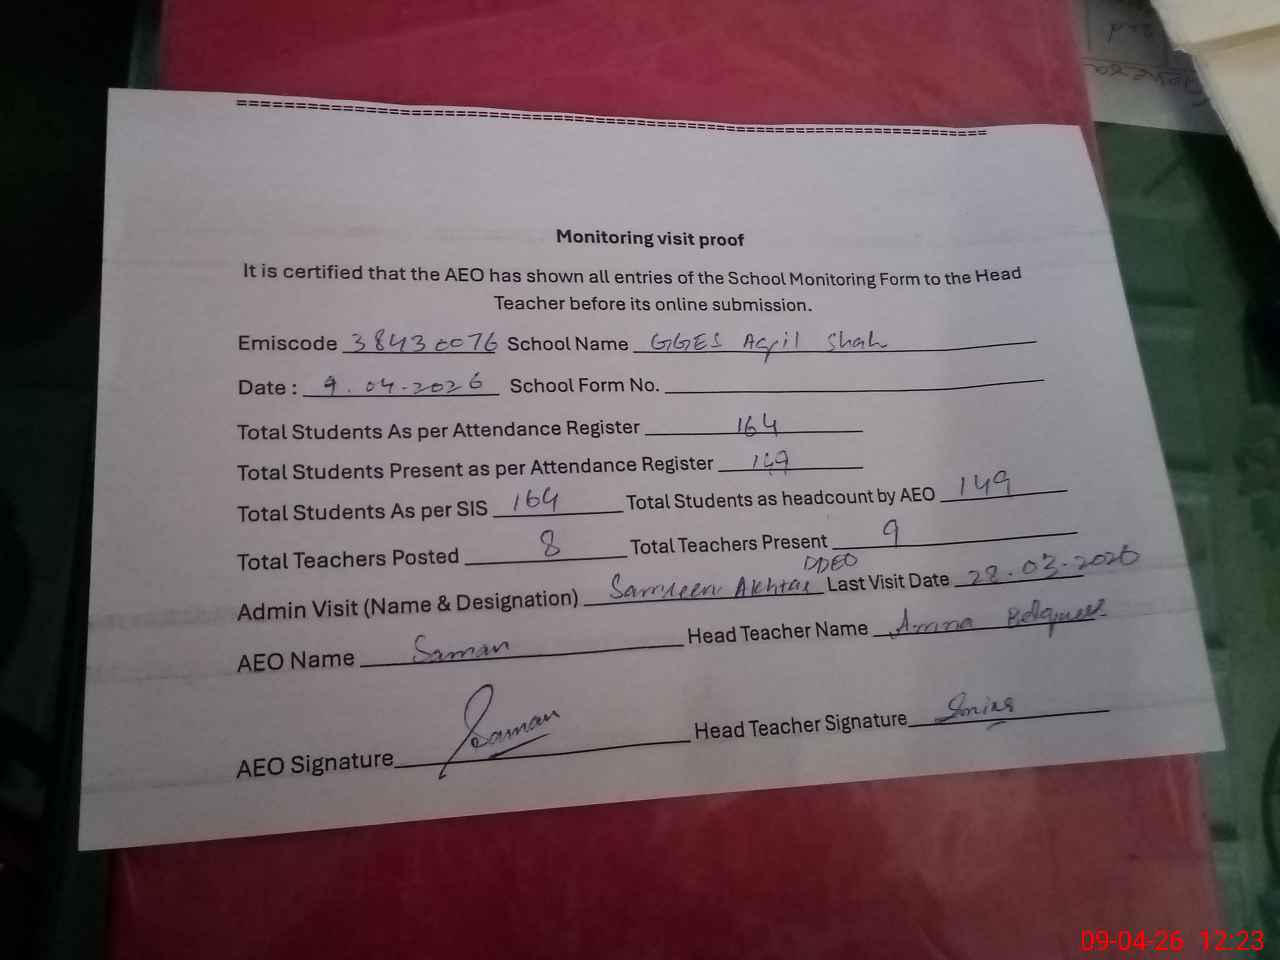 ================================================================
Monitoring visit proof
It is certified that the AEO has shown all entries of the School Monitoring Form to the Head
Teacher before its online submission.
Emiscode 38430076 School Name GGES Aqil Shah
Date : 9.04-2026 School Form No.
Total Students As per Attendance Register 164
Total Students Present as per Attendance Register 149
Total Students As per SIS 164 Total Students as headcount by AEO 149
Total Teachers Posted 8 Total Teachers Present 9
DDEO
Admin Visit (Name & Designation) Akhtar Last Visit Date 28.03-2026
AEO Name Saman Head Teacher Name Amna
AEO Signature Saman Head Teacher Signature
09-04-26 12:23